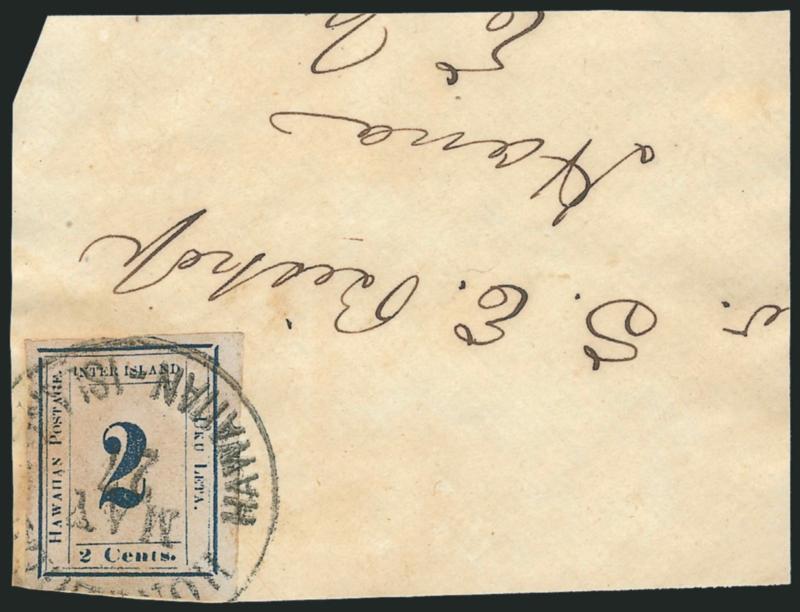 INTER ISLAND
HAWAIIAN POSTAGE.
2
UKU LETA.
2 Cents.
HAWAIIAN ISL
MAY
S. E. Bishop
Hana
E.